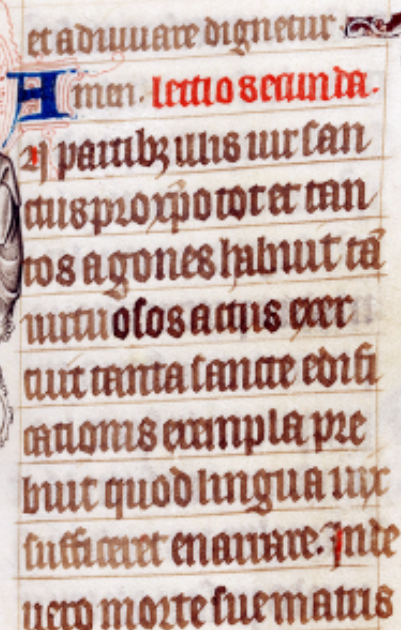 et adiuuare dignetur
Amen. lectio secunda.
In partibꝫ illis uir san
ctus pro xp̄o tot et tan
tos agones habuit tā
uirtuosos actus exer
cuit tanta sancte edifi
cationis exempla pre
buit quod lingua uix
sufficeret enarrare. Inde
uero morte sue matris